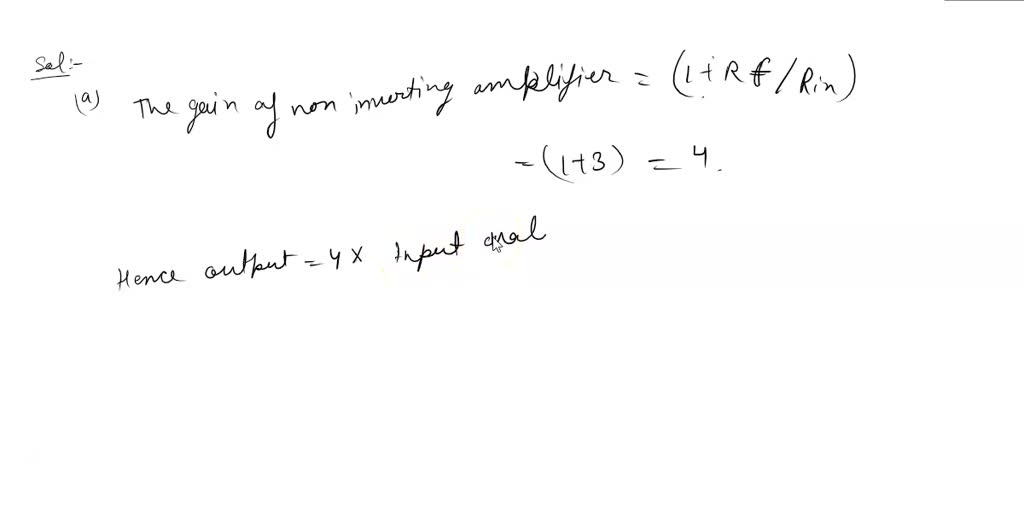 Sol:-
(a) The gain of non inverting amplifier = (1 + Rf/Rin)
= (1+3) = 4.
Hence output = 4 x Input